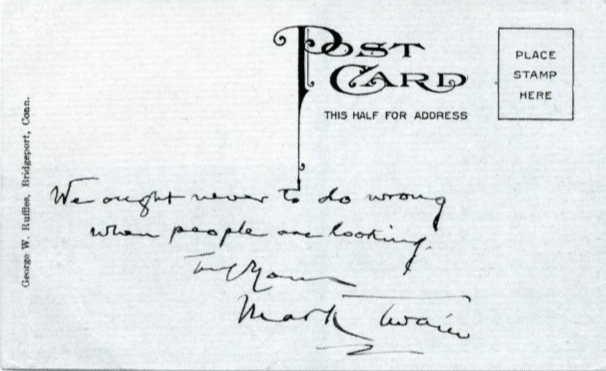 POST
CARD
THIS HALF FOR ADDRESS
PLACE
STAMP
HERE
George W. Ruffles, Bridgeport, Conn.
We ought never to do wrong
when people are looking.
Truly Yours
Mark Twain